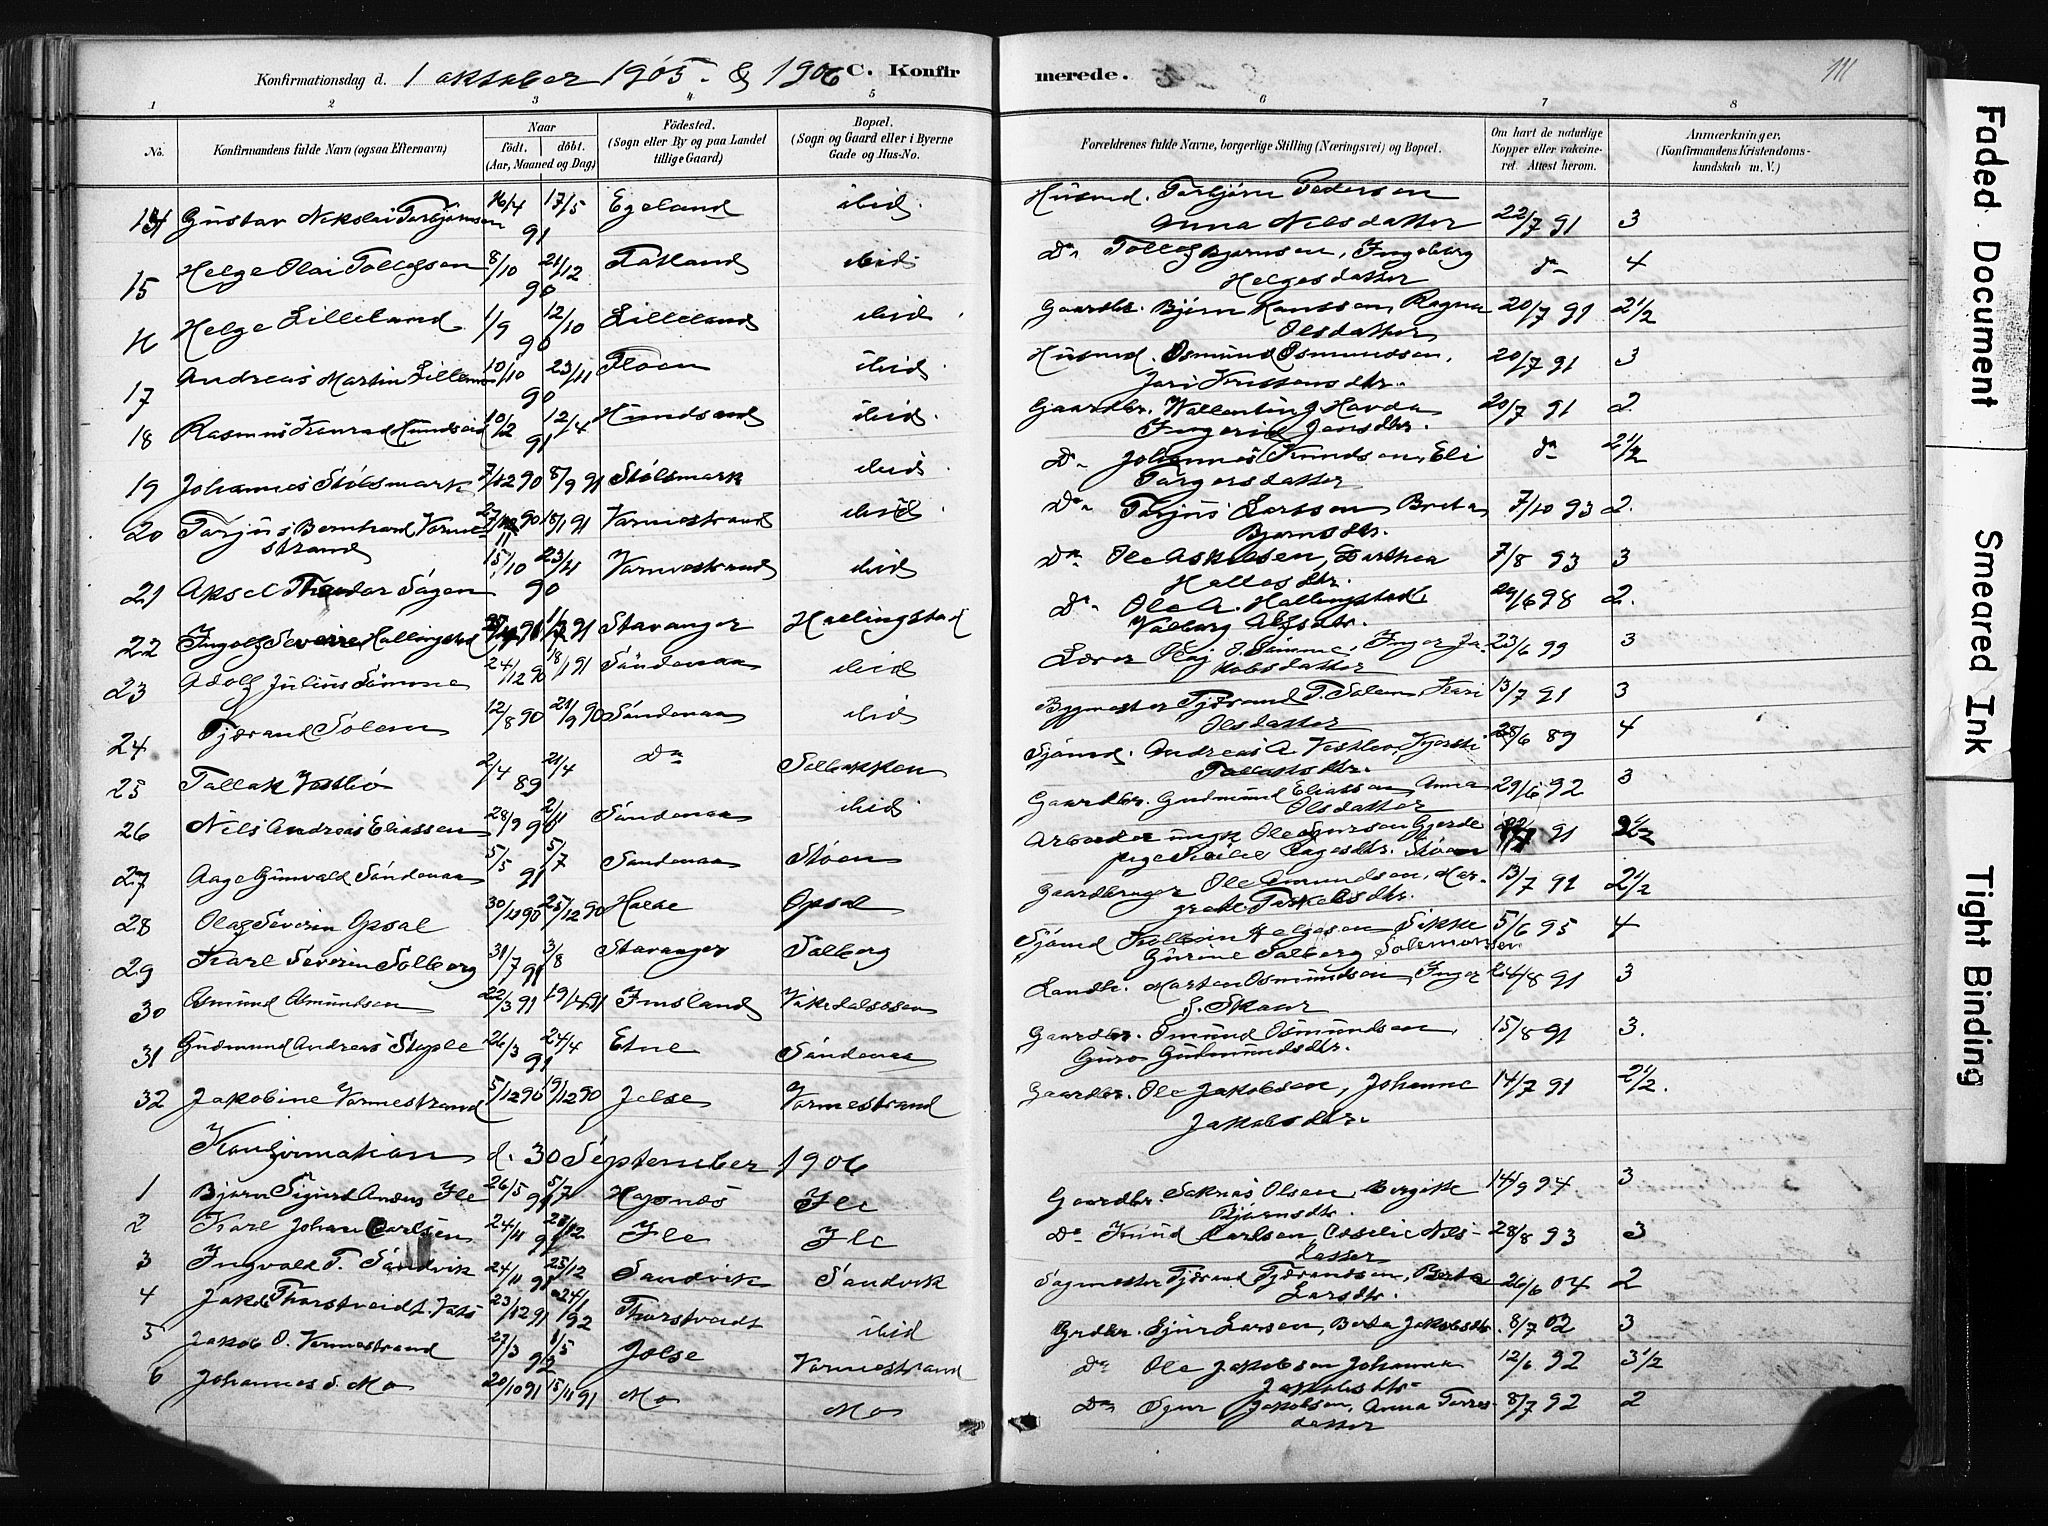 Konfirmationsdag d. 1 oktober 1905 & 1906 C. Konfirmerede. 111
1 2 3 4 5 6 7 8
No. Konfirmandens fulde Navn (ogsaa Efternavn) Naar födt. döbt. (Aar, Maaned og Dag) Födested. (Sogn eller By og paa Landet tillige Gaard) Bopæl. (Sogn og Gaard eller i Byerne Gade og Hus-No. Forældrenes fulde Navne, borgerlige Stilling (Næringsvei) og Bopæl. Om havt de naturlige Kopper eller vakcineret. Attest herom. Anmærkninger. (Konfirmandens Kristendomskundskab m. V.)
14 Gustav Nikolai Torbjørnsen 16/4 17/5 91 Egeland ibid. Husmd. Torbjørn Pederson Anna Nilsdatter 22/7 91 3
15 Helge Olai Tollefsen 8/10 21/12 90 ibid. Do Tollef Bjørnsen, Ingeborg Helgesdatter do 4
16 Helge Lilleland 1/9 12/10 90 Lilleland ibid. Gaardbr. Bjørn Hanssen, Ragna Olsdatter 20/7 91 2 1/2
17 Andreas Martin 10/10 23/11 90 Floen ibid. Husmd. Osmund Osmundsen, 20/7 91 3
18 Rasmus Konrad Hundseid 10/2 12/4 91 ibid. Gaardbr. Ingerid Jensdtr. 20/7 91 2.
19 Johannes Stølsmark 7/12 90 8/9 91 Stølsmark ibid. Do Johannes Knudsen, Eli Torgersdatter do 2 1/2
20 Torjus Bernhard Vormestrand 90 18/1 91 Vormestrand ibid Do Torjus Larssen Brita Bjørnsdtr. 7/10 93 2.
21 Aksel Theodor Sagen 15/10 23/11 90 Vormestrand ibid Do Ole Askelsen, Berthea 7/8 93 3
22 Ingolf Severin Hallingstad Stavanger Hallingstad Do Ole A. Hallingstad, Valborg 29/6 98 2.
23 Adolf Julius Sømme 24/12 90 18/1 91 Søndenaa ibid Lærer Olaj O. Sømme, Inger Jakobsdatter 23/6 99 3
24 Tjærand Solem 12/8 90 21/9 90 Søndenaa ibid Bygmester Tjærand T. Solem, Kari Olsdatter 13/7 91 3
25 Tallak Vestbø 2/4 21/4 89 Do Solbakken Sjømd. Andreas A. Vestbø, Kjersti 28/6 89 4
26 Nils Andreas Eliassen 28/9 2/11 90 Søndenaa ibid Gaardbr. Gudmund Eliassen Anna Olsdatter 29/6 92 3
27 Aage Gunvald Søndenaa 5/5 5/7 91 Søndenaa Støen Arbeider ungk. Ole Gjerde pige 91 2 1/2
28 Olaf Severin Opsal 30/11 90 25/12 90 Halse Opsal Gaardbruger Ole Amundsen, Margrete 13/7 91 2 1/2
29 Karl Severin Solberg 31/7 3/8 91 Stavanger Solberg Sjømd Helgesen Sikke Gurine Solberg Salomonsen 5/6 95 4
30 Osmund Osmundsen 22/3 91 19/4 91 Imsland Vikedalsosen Landh. Morten Osmundsen, Inger S. Skaar 24/8 91 3
31 Gudmund Andreas Steple 26/3 24/4 91 Etne Søndenaa Gaardbr. Omund Osmundsen, Guro Gudmundsdtr. 15/8 91 3.
32 Jakobine Vormestrand 5/12 90 19/12 90 Jelse Vormestrand Gaardbr. Ole Jakobsen, Johanne Jakobsdtr. 14/7 91 2 1/2.
Konfirmation d. 30 September 1906
1 Bjørn Sigurd Andr. Ilc 26/5 5/7 91 Høgnes Ilc Gaardbr. Saknas Olsen, Bergitte Bjørnsdtr. 14/9 94 3
2 Karl Johan Carlsen 24/11 91 Ilc Ilc Do Knud Carlsen, Osselie Nilsdatter 28/8 93 3
3 Ingvald T. Sandvik 24/11 25/12 91 Sandvik Sandvik Sagmester Tjærand Tjærandsen, Berta Larsdtr. 26/6 04 2
4 Jakob Thorstveidt. Vats 23/12 91 24/1 92 Thorstveidt ibid Grdbr. Sjur Larsen, Berta Jakobsdtr. 8/7 02 3
5 Jakob O. Vormestrand 27/3 1/5 92 Jelse Vormestrand Do Ole Jakobsen Johanna Jakobsdtr 12/6 92 3 1/2
6 Johannes S. Mo 20/10 91 15/11 91 Mo Mo Do Sjur Jakobsen, Anna Torresdatter 8/7 92 2
Faded Document
Smeared Ink
Tight Binding